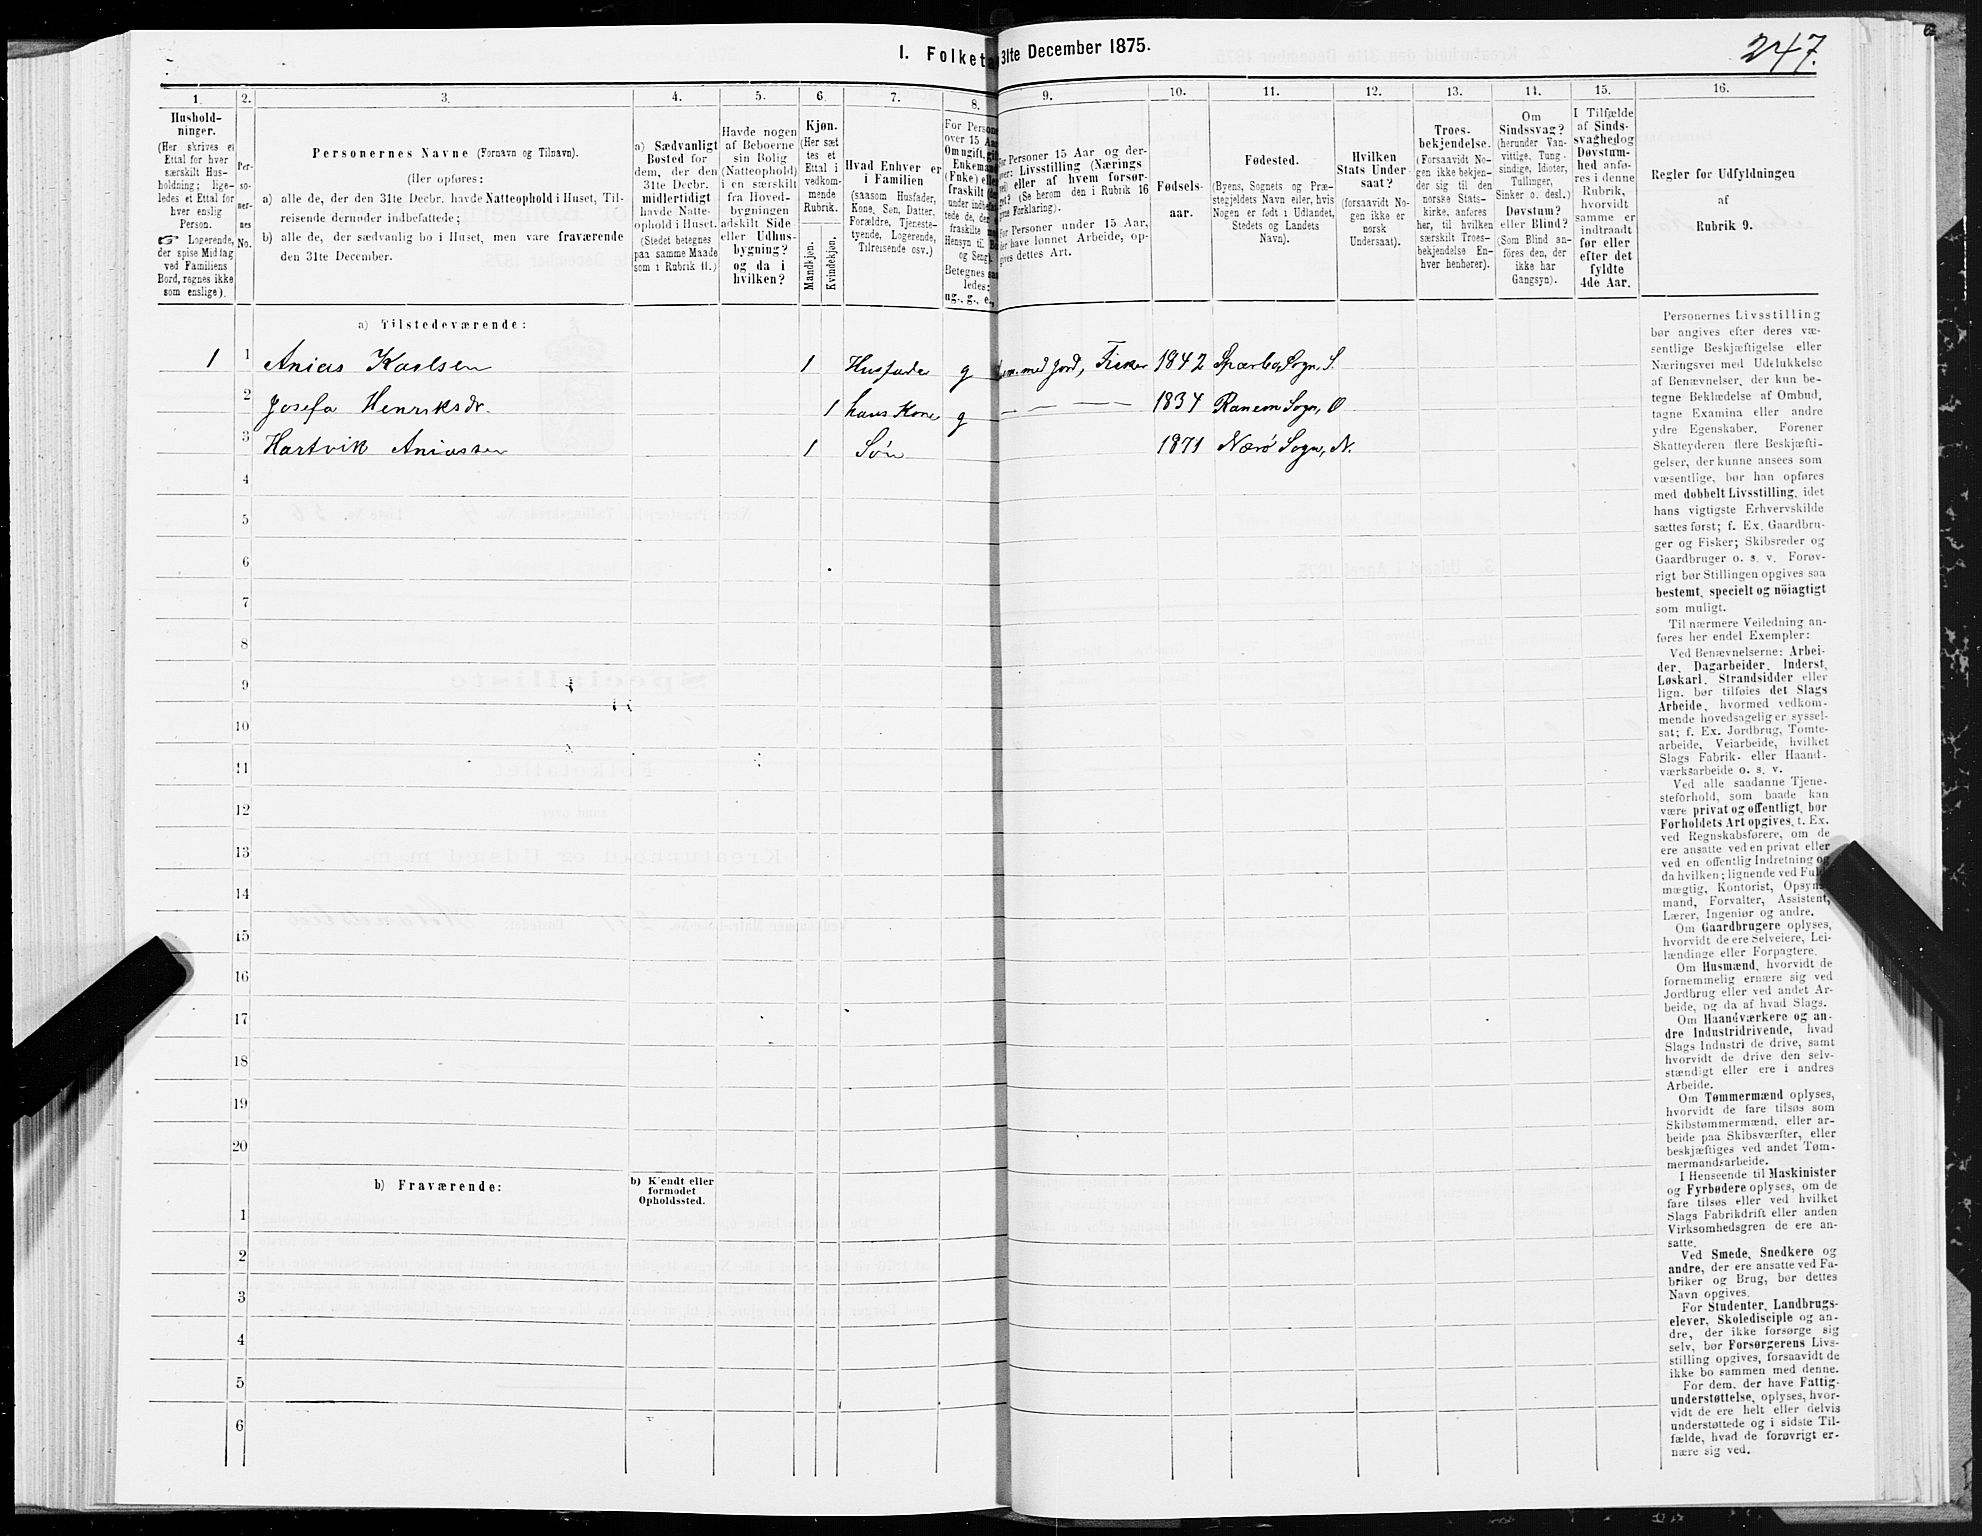 1. Folketæ 31te December 1875.
247.
1. 2. 3. 4. 5. 6. 7. 8. 9. 10. 11. 12. 13. 14. 15. 16.
Hushold-
ninger.
(Her skrives et
Ettal for hver
særskilt Hus-
holdning; lige-
ledes et Ettal for
hver enslig
Person.
Logerende,
der spise Middag
ved Familiens
Bord, regnes ikke
som enslige).
Per-
so-
ner-
nes
No.
Personernes Navne (Fornavn og Tilnavn).
(Her opføres:
a) alle de, der den 31te Decbr. havde Natteophold i Huset, Til-
reisende derunder indbefattede;
b) alle de, der sædvanlig bo i Huset, men vare fraværende
den 31te December.
a) Sædvanligt
Bosted for
dem, der den
31te Decbr.
midlertidigt
havde Natte-
ophold i Huset.
(Stedet betegnes
paa samme Maade
som i Rubrik 11.)
Havde nogen
af Beboerne
sin Bolig
(Natteophold)
i en særskilt
fra Hoved-
bygningen
adskilt Side
eller Udhus-
bygning?
og da i
hvilken?
Kjøn.
(Her sæt
tes et
Ettal i
vedkom-
mende
Rubrik.
Mandkjøn.
Kvindekjøn.
Hvad Enhver er
i Familien
(saasom Husfader,
Kone, Søn, Datter,
Forældre, Tjeneste-
tyende, Logerende,
Tilreisende osv.)
For Perso
over 15 Aa
Om ugift, gi
Enkeman
(Enke) elle
fraskilt (d
under indbe
tede de, der
fraskilte m
Hensyn til B
og Seng).
Betegnes sa
ledes:
ug., g., e.,
For Personer 15 Aar og der-
over: Livsstilling (Nærings
vei) eller af hvem forsør-
get? (Se herom den i Rubrik 16
givne Forklaring).
For Personer under 15 Aar,
der have lønnet Arbeide, op-
gives dettes Art.
Fødsels-
aar.
Fødested.
(Byens, Sognets og Præ-
stegjeldets Navn eller, hvis
Nogen er født i Udlandet,
Stedets og Landets
Navn).
Hvilken
Stats Under-
saat?
(forsaavidt No-
gen ikke er
norsk
Undersaat).
Troes-
bekjendelse.
(Forsaavidt No-
gen ikke bekjen-
der sig til den
norske Stats-
kirke, anføres
her, til hvilken
særskilt Troes-
bekjendelse En-
hver henhører).
Om
Sindssvag?
(herunder Van-
vittige, Tung-
sindige, Idioter,
Tullinger,
Sinker o. desl.)
Døvstum?
eller Blind?
(Som Blind an-
føres den, der
ikke har
Gangsyn).
I Tilfælde
af Sinds-
svaghed og
Døvstum-
hed anfø-
res i denne
Rubrik,
hvorvidt
samme er
indtraadt
før eller
efter det
fyldte
4de Aar.
Regler for Udfyldningen
af
Rubrik 9.
a) Tilstedeværende:
1 1 Anias Karlsen 1 Husfader g med Jord, Fisker 1842 Sparbo Sogn, S.
2 Josefa Henriksdr. 1 hans Kone g — — — 1834 Ranem Sogn, O
3 Hartvik Aniassen 1 Søn 1871 Nærö Sogn, N.
4
5
6
7
8
9
10
11
12
13
14
15
16
17
18
19
20
b) Fraværende:
b) Kjendt eller
formodet
Opholdssted.
1
2
3
4
5
6
Personernes Livsstilling
bør angives efter deres væ-
sentlige Beskjæftigelse eller
Næringsvei med Udelukkelse
af Benævnelser, der kun be-
tegne Beklædelse af Ombud,
tagne Examina eller andre
ydre Egenskaber. Forener
Skatteyderen flere Beskjæfti-
gelser, der kunne ansees som
væsentlige, bør han opføres
med dobbelt Livsstilling, idet
hans vigtigste Erhvervskilde
sættes først; f. Ex. Gaardbru-
ger og Fisker; Skibsreder og
Gaardbruger o. s. v. Forøv-
rigt bør Stillingen opgives saa
bestemt, specielt og nöiagtigt
som muligt.
Til nærmere Veiledning an-
føres her endel Exempler:
Ved Benævnelserne: Arbei-
der, Dagarbeider, Inderst,
Løskarl, Strandsidder eller
lign. bør tilføies det Slags
Arbeide, hvormed vedkom-
mende hovedsagelig er syssel-
sat; f. Ex. Jordbrug, Tomte-
arbeide, Veiarbeide, hvilket
Slags Fabrik- eller Haand-
værksarbeide o. s. v.
Ved alle saadanne Tjene-
steforhold, som baade kan
være privat og offentligt, bør
Forholdets Art opgives, t. Ex.
ved Regnskabsførere, om de
ere ansatte ved en privat eller
ved en offentlig Indretning og
da hvilken; lignende ved Fuld-
mægtig, Kontorist, Opsyns-
mand, Forvalter, Assistent,
Lærer, Ingeniør og andre.
Om Gaardbrugere oplyses,
hvorvidt de ere Selveiere, Lei-
lændinge eller Forpagtere.
Om Husmænd, hvorvidt de
fornemmelig ernære sig ved
Jordbrug eller ved andet Ar-
beide, og da af hvad Slags.
Om Haandværkere og an-
dre Industridrivende, hvad
Slags Industri de drive, samt
hvorvidt de drive den selv-
stændigt eller ere i andres
Arbeide.
Om Tømmermænd oplyses,
hvorvidt de fare tilsøs som
Skibstømmermænd, eller ar-
beide paa Skibsværfter, eller
beskjæftiges ved andet Tøm-
mermandsarbeide.
I Henseende til Maskinister
og Fyrbødere oplyses, om de
fare tilsøs eller ved hvilket
Slags Fabrikdrift eller anden
Virksomhedsgren de ere an-
satte.
Ved Smede, Snedkere og
andre, der ere ansatte ved Fa-
briker og Brug, bør dettes
Navn opgives.
For Studenter, Landbrugs-
elever, Skoledisciple og an-
dre, der ikke forsørge sig
selv, bør Forsørgerens Livs-
stilling opgives, forsaavidt de
ikke bo sammen med denne.
For dem, der have Fattig-
understøttelse, oplyses, hvor-
vidt de ere helt eller delvis
understøttede og i sidste Til-
fælde, hvad de forøvrigt er-
nære sig ved.